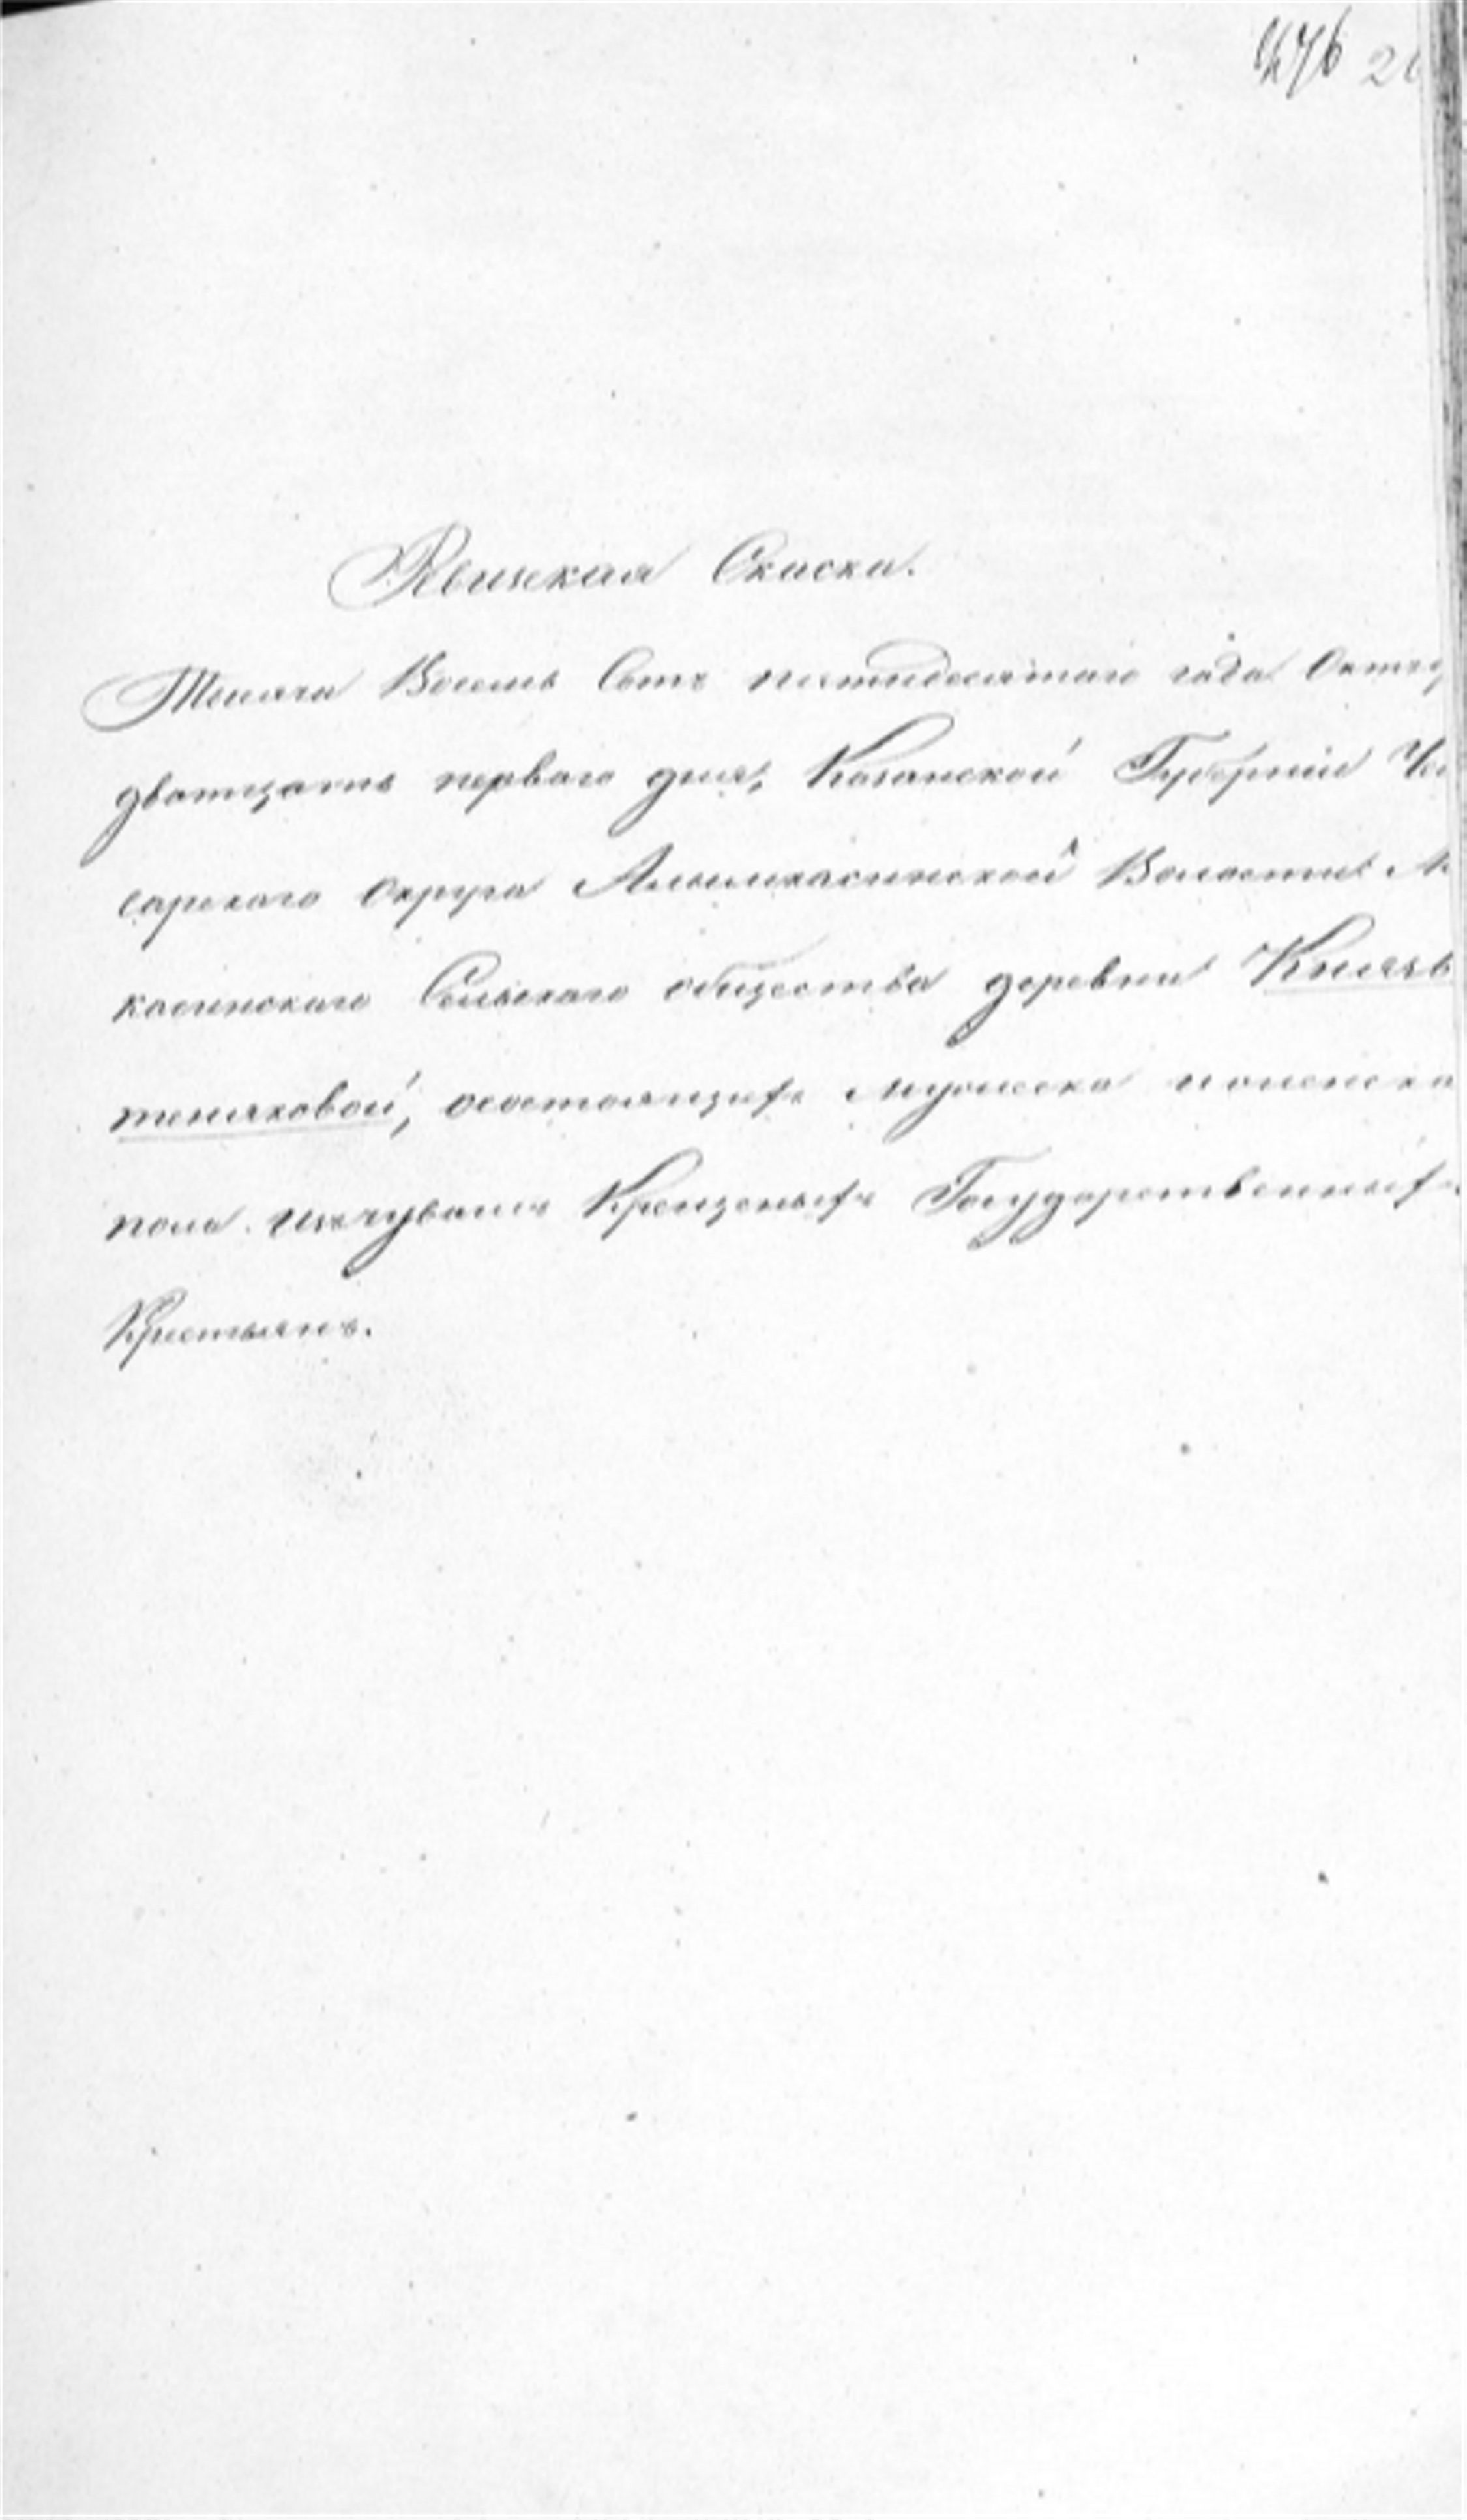 276 2
Ревизская Скаска.
Тысяча Восемь Сотъ пятидесятаго года Октя
дватцать перваго дня, Казанской Губерніи Че
сарскаго Округа Алымкасинской Волости
касинскаго Сельскаго общества деревни Князь
теняковой, осостоящихъ мужеска иженска
пола изъчувашъ Крещеныхъ Государственныхъ
Крестьянъ.